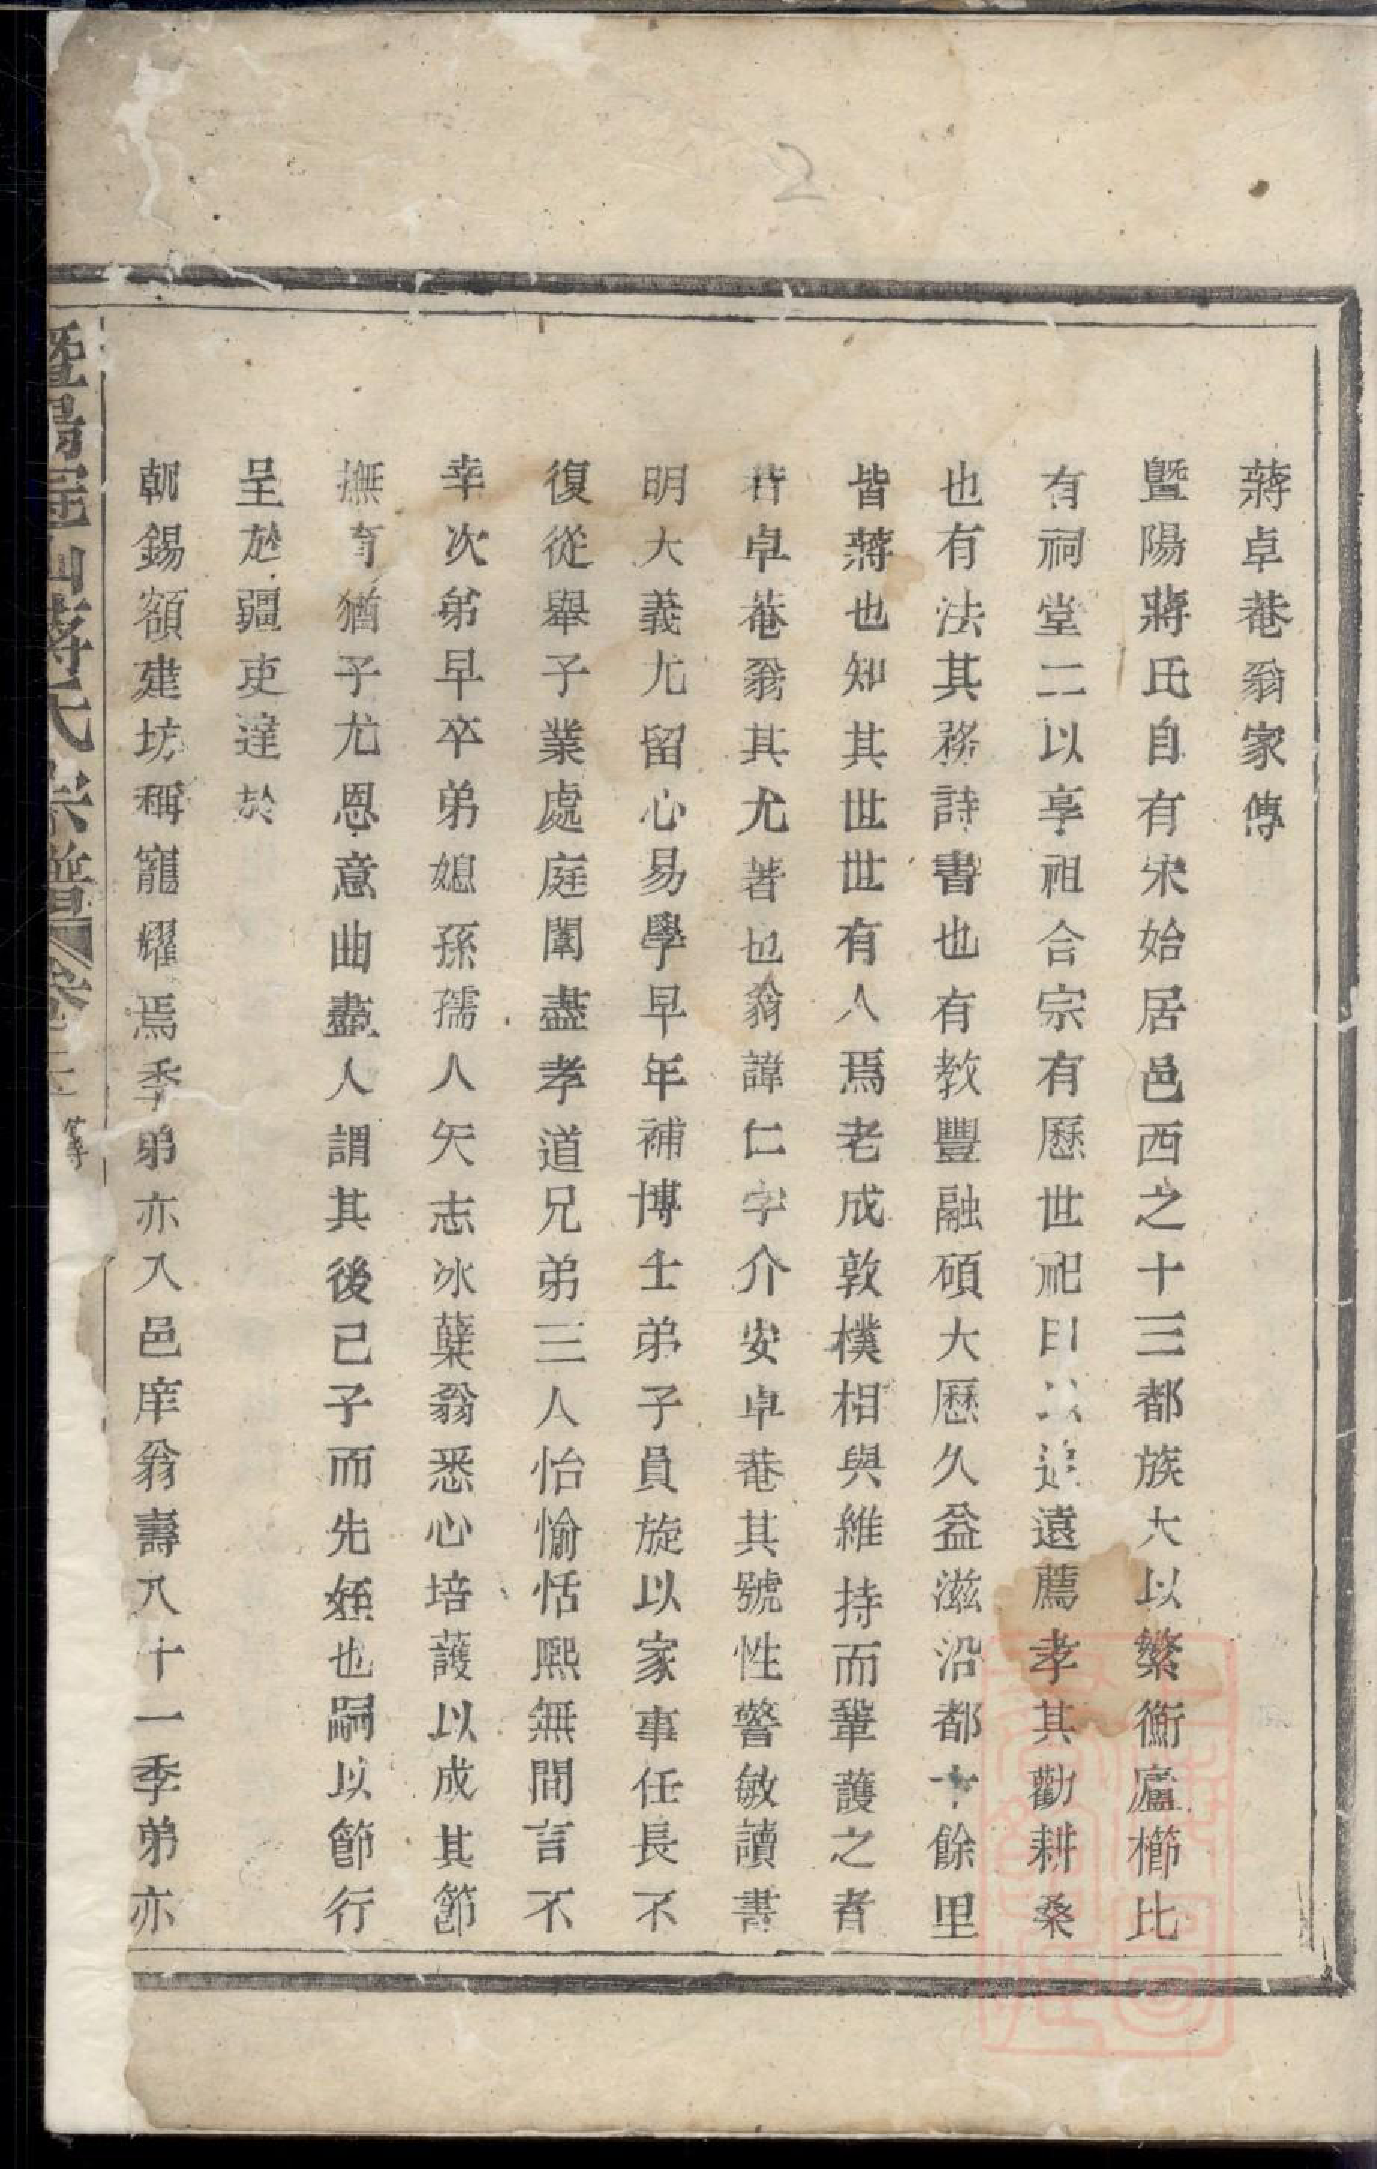 2
蔣卓菴翁家傳
暨陽蔣氏自有宋始居邑西之十三都族大以繁衡廬櫛比
有祠堂二以享祖合宗有歷世祀田以追遠薦孝其勸耕桑
也有法其務詩書也有教豐融碩大歷久益滋沿都十餘里
皆蔣也知其世世有人焉老成敦樸相與維持而鞏護之者
若卓菴翁其尤著也翁諱仁字介安卓菴其號性警敏讀書
明大義尤留心易學早年補博士弟子員旋以家事任長不
復從舉子業處庭闈盡孝道兄弟三人怡愉恬熙無間言不
幸次弟早卒弟媳孫孺人矢志冰蘖翁悉心培護以成其節
撫育猶子尤恩意曲盡人謂其後己子而先姪也嗣以節行
呈於疆吏達於
朝錫額建坊稱寵耀焉季弟亦入邑庠翁壽八十一季弟亦
暨陽 山蔣氏宗譜 卷 傳